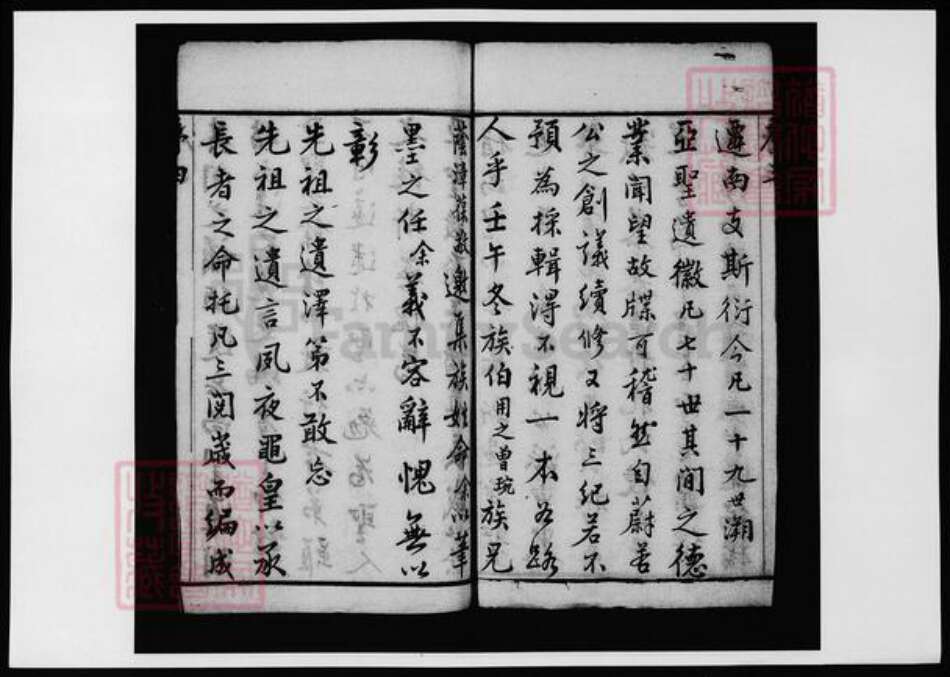 遷南支斯衍今凡一十九世溯
亞聖遺徽凡七十世其間之德
業聞望故牒可稽然自蔚若
公之創議續修又將三紀若不
預為採輯得不視一本若路
人乎壬午冬族伯用之曾琬族兄
蔭漳葆敬邀集族姓命余以筆
墨之任余義不容辭愧無以
彰
先祖之遺澤第不敢忘
先祖之遺言夙夜黽皇以承
長者之命托凡三閱歲而編成
FamilySearch